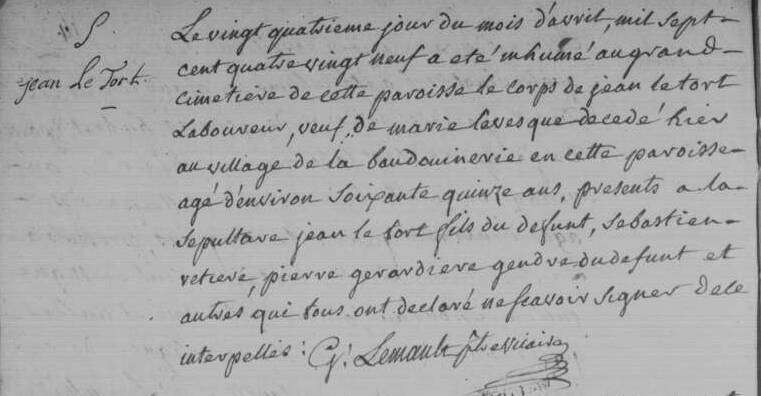 S.
jean Le Tort
Le vingt quatrieme jour du mois d'avril, mil sept-
cent quatre vingt neuf a eté inhumé au grand-
cimetiere de cette paroisse le corps de jean le tort
Laboureur, veuf de marie levesque decedé hier
au village de la baudouinerie en cette paroisse-
agé d'environ soixante quinze ans, presents a la-
sepulture jean le tort fils du defunt, sebastien-
pierre gerardiere gendre du defunt et
autres qui tous ont declaré ne scavoir signer de ce
interpellés : G. Lenault